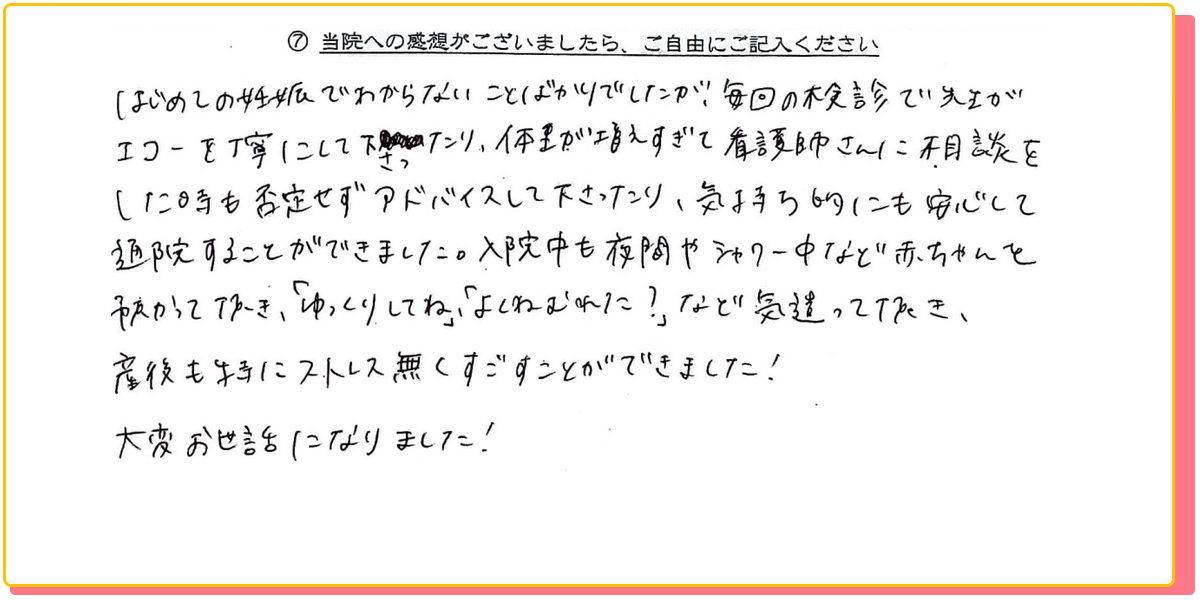 ⑦ 当院への感想がございましたら、ご自由にご記入ください
はじめての妊娠でわからないことばかりでしたが、毎回の検診で先生が
エコーを丁寧にして下さったり、体重が増えすぎて看護師さんに相談を
した時も否定せずアドバイスして下さったり、気持ち的にも安心して
通院することができました。入院中も夜間やシャワー中など赤ちゃんを
預かって頂き、「ゆっくりしてね」、「よくねむれた?」など気遣って頂き、
産後も特にストレス無くすごすことができました!
大変お世話になりました!